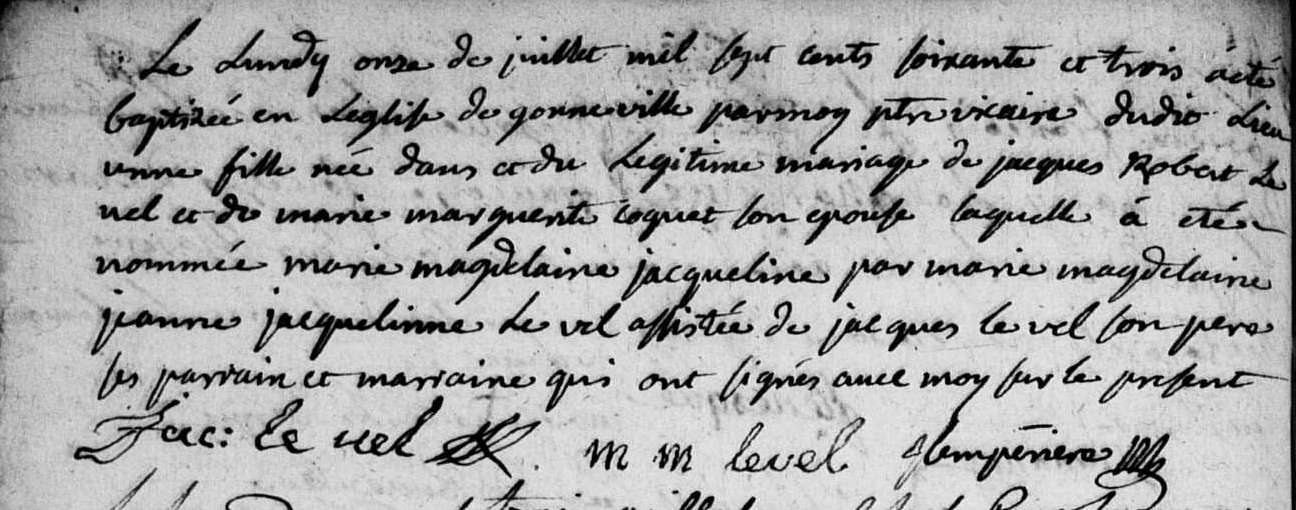 Le Lundy onze de juillet mil sept cents soixante et trois a eté
baptizée en Leglise de gonneville par moy ptre vicaire dudit Lieu
unne fille née dans et du Legitime mariage de jacques Robert Le
vel et de marie marguerite coquet son epouse laquelle á eté
nommée marie magdelaine jacqueline par marie magdelaine
jeanne jacquelinne Le vel assistée de jacques le vel son pere
ses parrain et marraine qui ont signés avec moy sur le present
Jac: le vel m m level